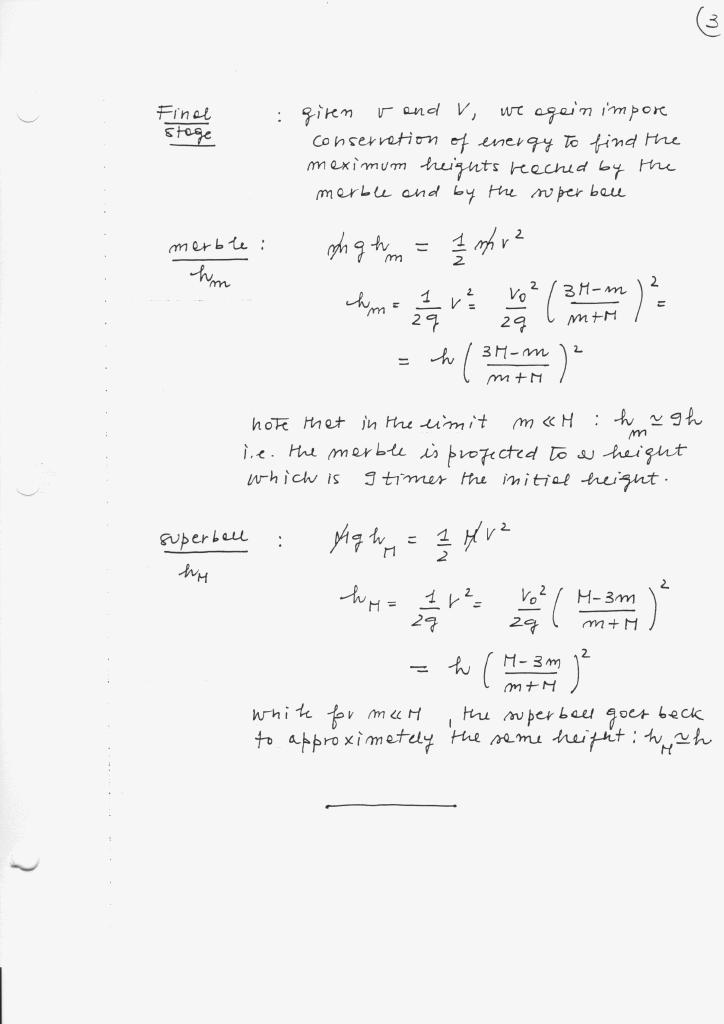 3
Final : given v and V, we again impose
stage conservation of energy to find the
maximum heights reached by the
marble and by the superball
marble : mgh_m = 1/2 mv²
h_m
h_m = 1/2g v² = V₀²/2g ( 3M-m / m+M )² =
= h ( 3M-m / m+M )²
note that in the limit m ≪ M : h_m ≃ 9h
i.e. the marble is projected to a height
which is 9 times the initial height.
superball : Mgh_M = 1/2 MV²
h_M
h_M = 1/2g V² = V₀²/2g ( M-3m / m+M )²
= h ( M-3m / m+M )²
while for m≪M , the superball goes back
to approximately the same height : h_M ≃ h